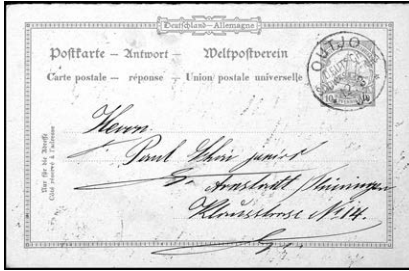 Deutschland – Allemagne
Postkarte – Antwort – Weltpostverein
Carte postale – réponse – Union postale universelle
OUTJO
10 10
Nur für die Adresse
Côté réservé à l'adresse
Herrn
Paul junior
Arnstadt Thüringen
Klausstrasse No 14.